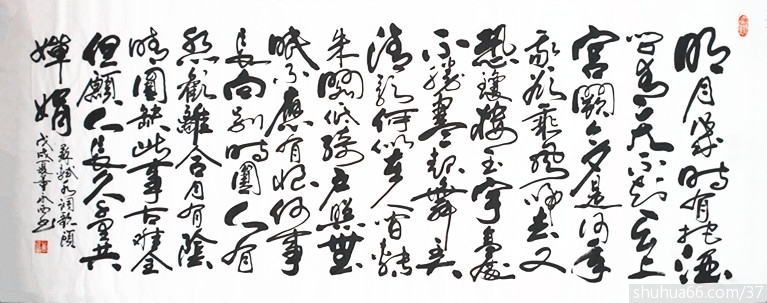 明月幾時有把酒
問青天不知天上
宮闕今夕是何年
我欲乘風歸去又
恐瓊樓玉宇高處
不勝寒起舞弄
清影何似在人間轉
朱閣低綺戶照無
眠不應有恨何事
長向別時圓人有
悲歡離合月有陰
晴圓缺此事古難全
但願人長久千里共
嬋娟
蘇軾水調歌頭
戊戌夏
shuhua66.com/37